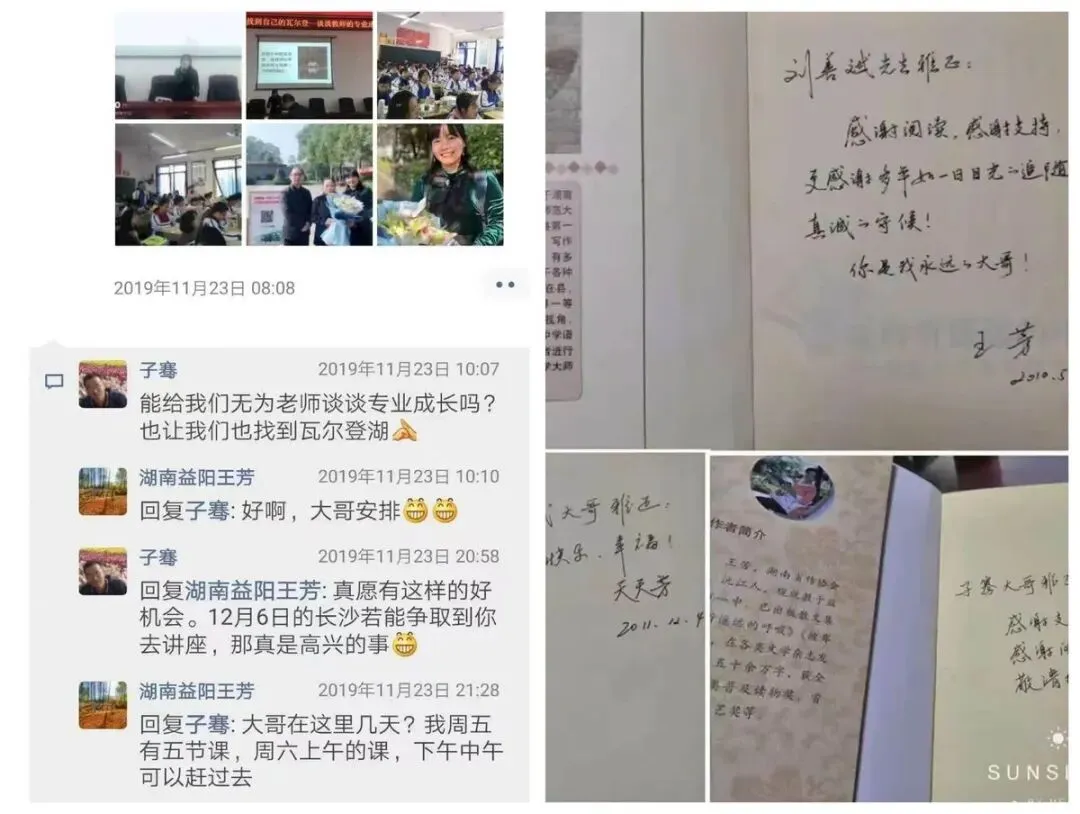 找到自己的瓦尔登—谈谈教师的专业成
2019年11月23日 08:08
子骞
2019年11月23日 10:07
能给我们无为老师谈谈专业成长吗？
也让我们也找到瓦尔登湖
湖南益阳王芳
2019年11月23日 10:10
回复子骞: 好啊，大哥安排
子骞
2019年11月23日 20:58
回复湖南益阳王芳: 真愿有这样的好
机会。12月6日的长沙若能争取到你
去讲座，那真是高兴的事
湖南益阳王芳
2019年11月23日 21:28
回复子骞: 大哥在这里几天？我周五
有五节课，周六上午的课，下午中午
可以赶过去
刘善斌先生雅正：
感谢阅读，感谢支持，
更感谢多年如一日目光的追随
真诚的守候！
你是我永远的大哥！
王芳
2010.5
范大
第一
写作
有多
各种
在县、
一等
视角，
中学语
进行
大师
大哥雅正：
快乐、幸福！
天天芳
2011.12.4
作者简介
王芳，湖南省作协会
沅江人，现就教于益
一中，已出版散文集
遥远的呼唤》《故事
，在各类文学杂志发
五十余万字，获全
普及读物奖，首
艺奖等。
子骞大哥雅正
感谢支
感谢阅
敬请
SUNS